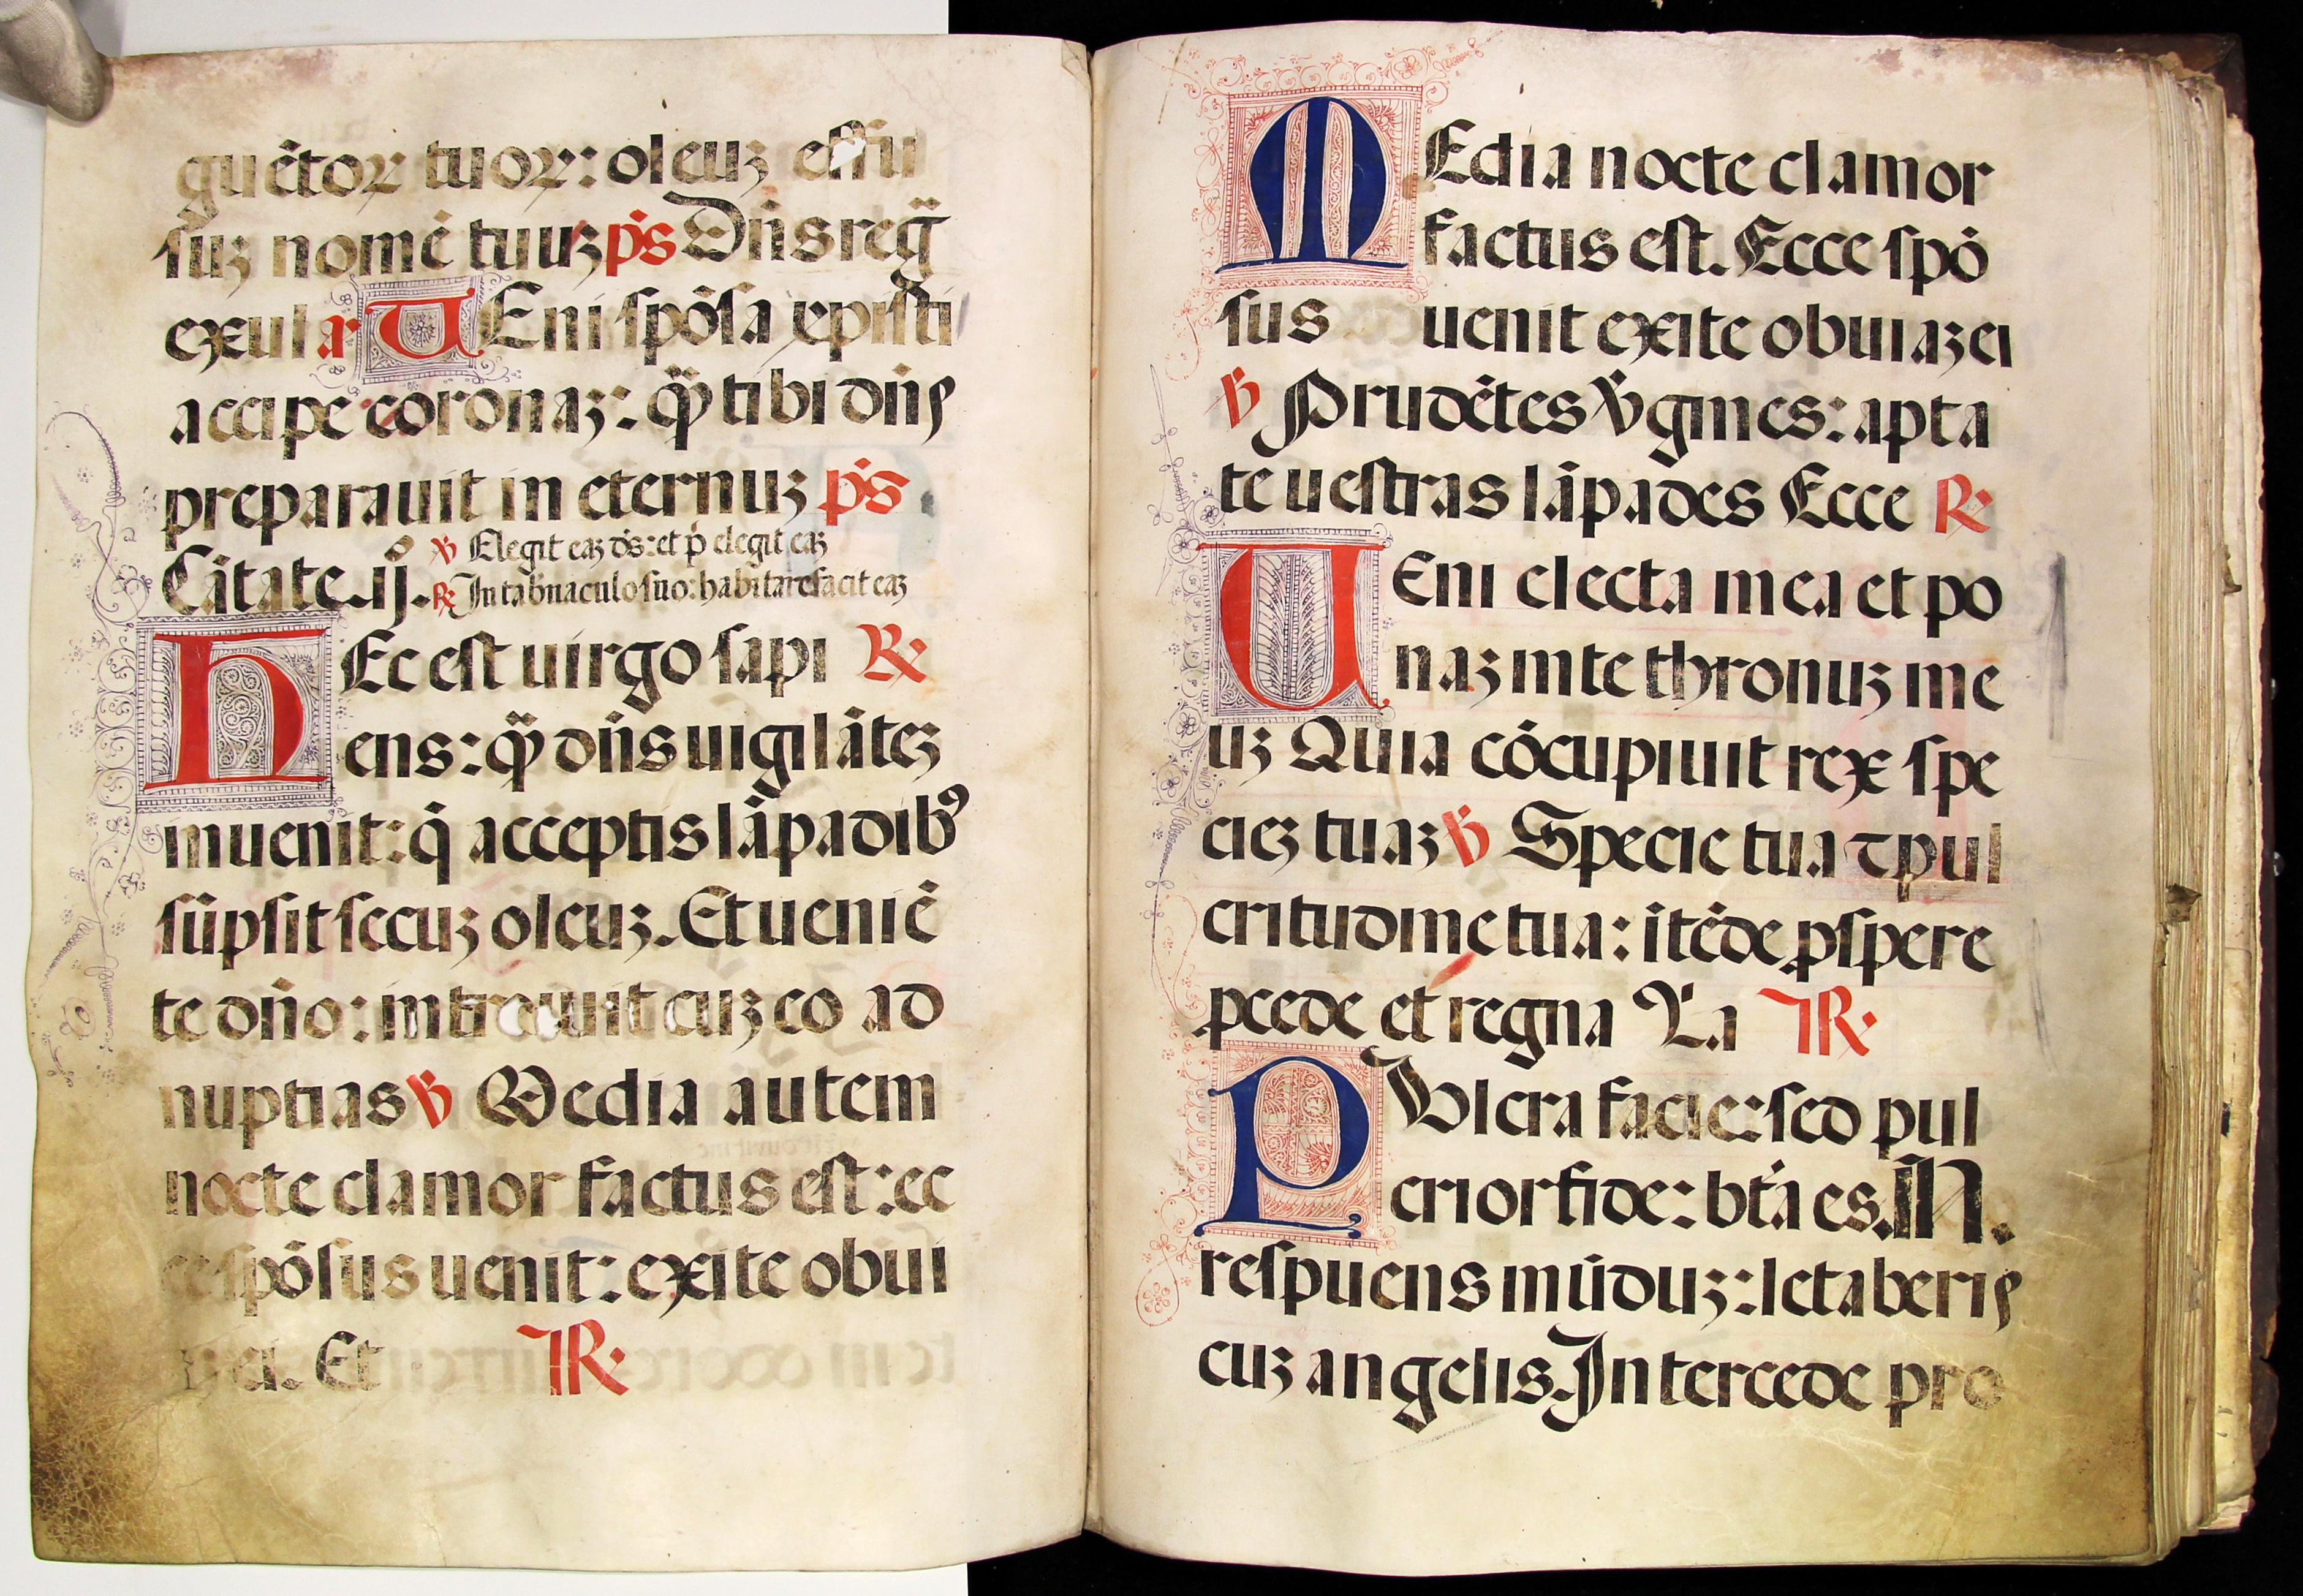 guētoꝝ tuoꝝ: oleuꝫ effu
ſuꝫ nomē tuuꝫ p̄s Dn̄s reḡ
exul a᷒ UEni ſpōſa xpiſti
accipe coronaꝫ: qͣꝫ tibi dn̄s
preparauit in eternuꝫ p̄s
℣ Elegit eaꝫ d̄s: et p̄ elegit eaꝫ
Cātate. ij.º ℟ In tab̄naculo ſuo: habitare facit eaꝫ
HEc eſt uirgo ſapi ℟
ens: qͣꝫ dn̄s uigilāteꝫ
inuenit: q̄ acceptis lāpadibꝰ
ſūpſit ſecuꝫ oleuꝫ. Et ueniē
te dn̄o: introiuit cuꝫ eo ad
nuptias ℣ Media autem
nocte clamor factus eſt: ec
ce ſpōſus uenit: exite obui
ei. Et ℟
MEdia nocte clamor
factus eſt. Ecce ſpō
ſus uenit exite obuiaꝫ ei
℣ Prudētes v̄gines: apta
te ueſtras lāpades Ecce ℟
UEni electa mea et po
naꝫ in te thronuꝫ me
uꝫ Quia cōcupiuit rex ſpe
cieꝫ tuaꝫ ℣ Specie tua ⁊ pul
critudine tua: ītēde ꝓſpere
ꝓcede et regna Va ℟
PUlcra facie: ſed pul
crior fide: bt̄a es. N̄.
reſpuens mūduꝫ: letaberis
cuꝫ angelis. Intercede pro